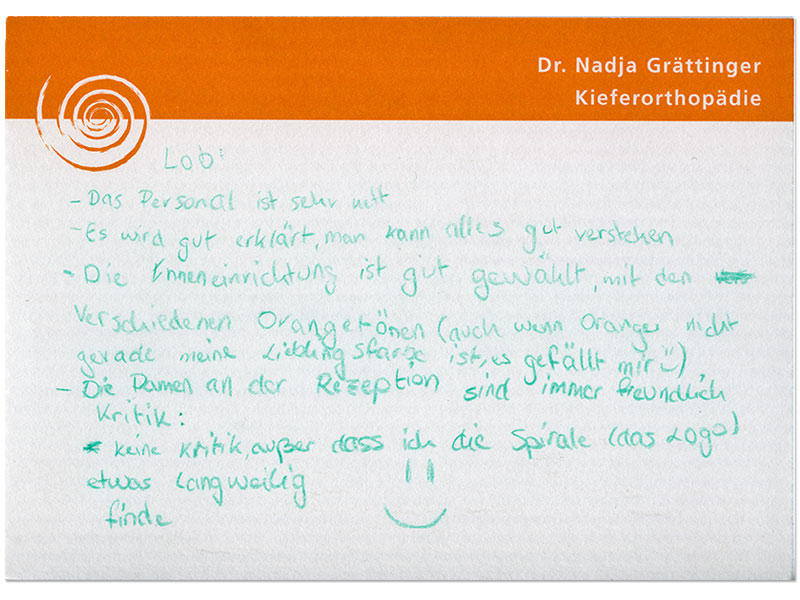 Dr. Nadja Grättinger
Kieferorthopädie
Lob:
- Das Personal ist sehr nett
- Es wird gut erklärt, man kann alles gut verstehen
- Die Inneneinrichtung ist gut gewählt, mit den
verschiedenen Orangetönen (auch wenn Orange nicht
gerade meine Lieblingsfarbe ist, es gefällt mir :))
- Die Damen an der Rezeption sind immer freundlich
Kritik:
keine Kritik, außer dass ich die Spirale (das Logo)
etwas langweilig
finde